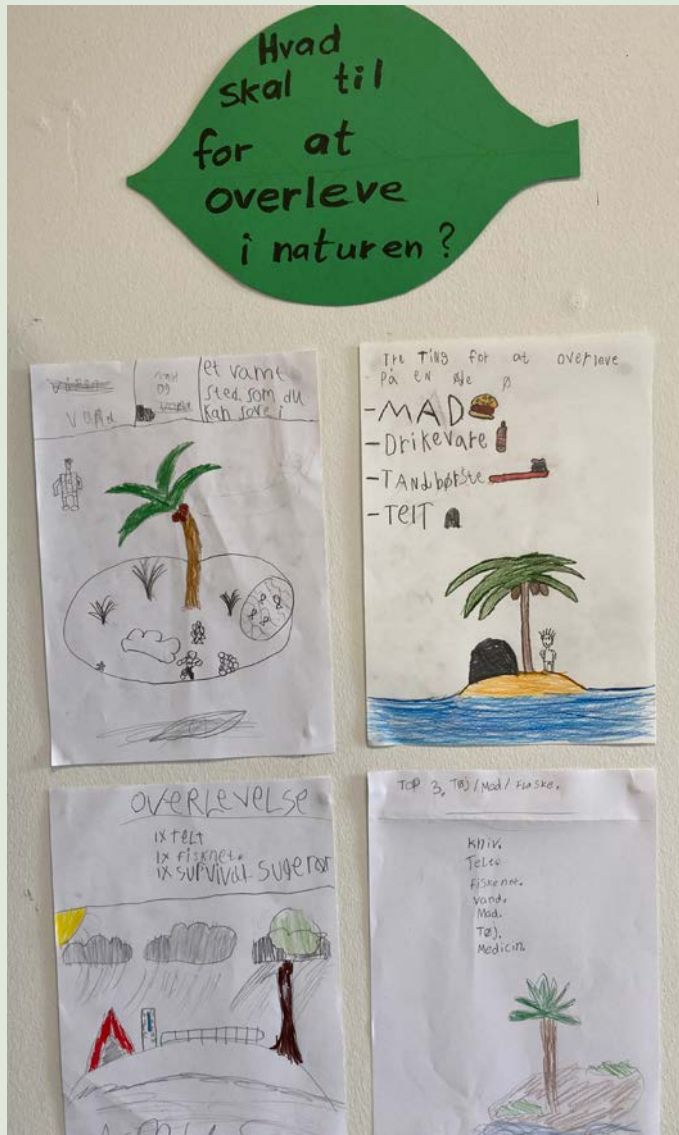 Hvad
skal til
for at
overleve
i naturen?
VAND
og
et vamt
sted. som du
kan sove i
Tre Ting for at overleve
På en øde ø
-MAD
-Drikevare
-TANdbørste
-TelT
OVERLEVELSE
1x telt
1x fisknet.
1x SURVIVAL-SUGERØR
TOP 3, Tøj/Mad/Flaske.
kniv.
Telte
Fiskenet.
vand.
Mad.
Tøj.
Medicin.